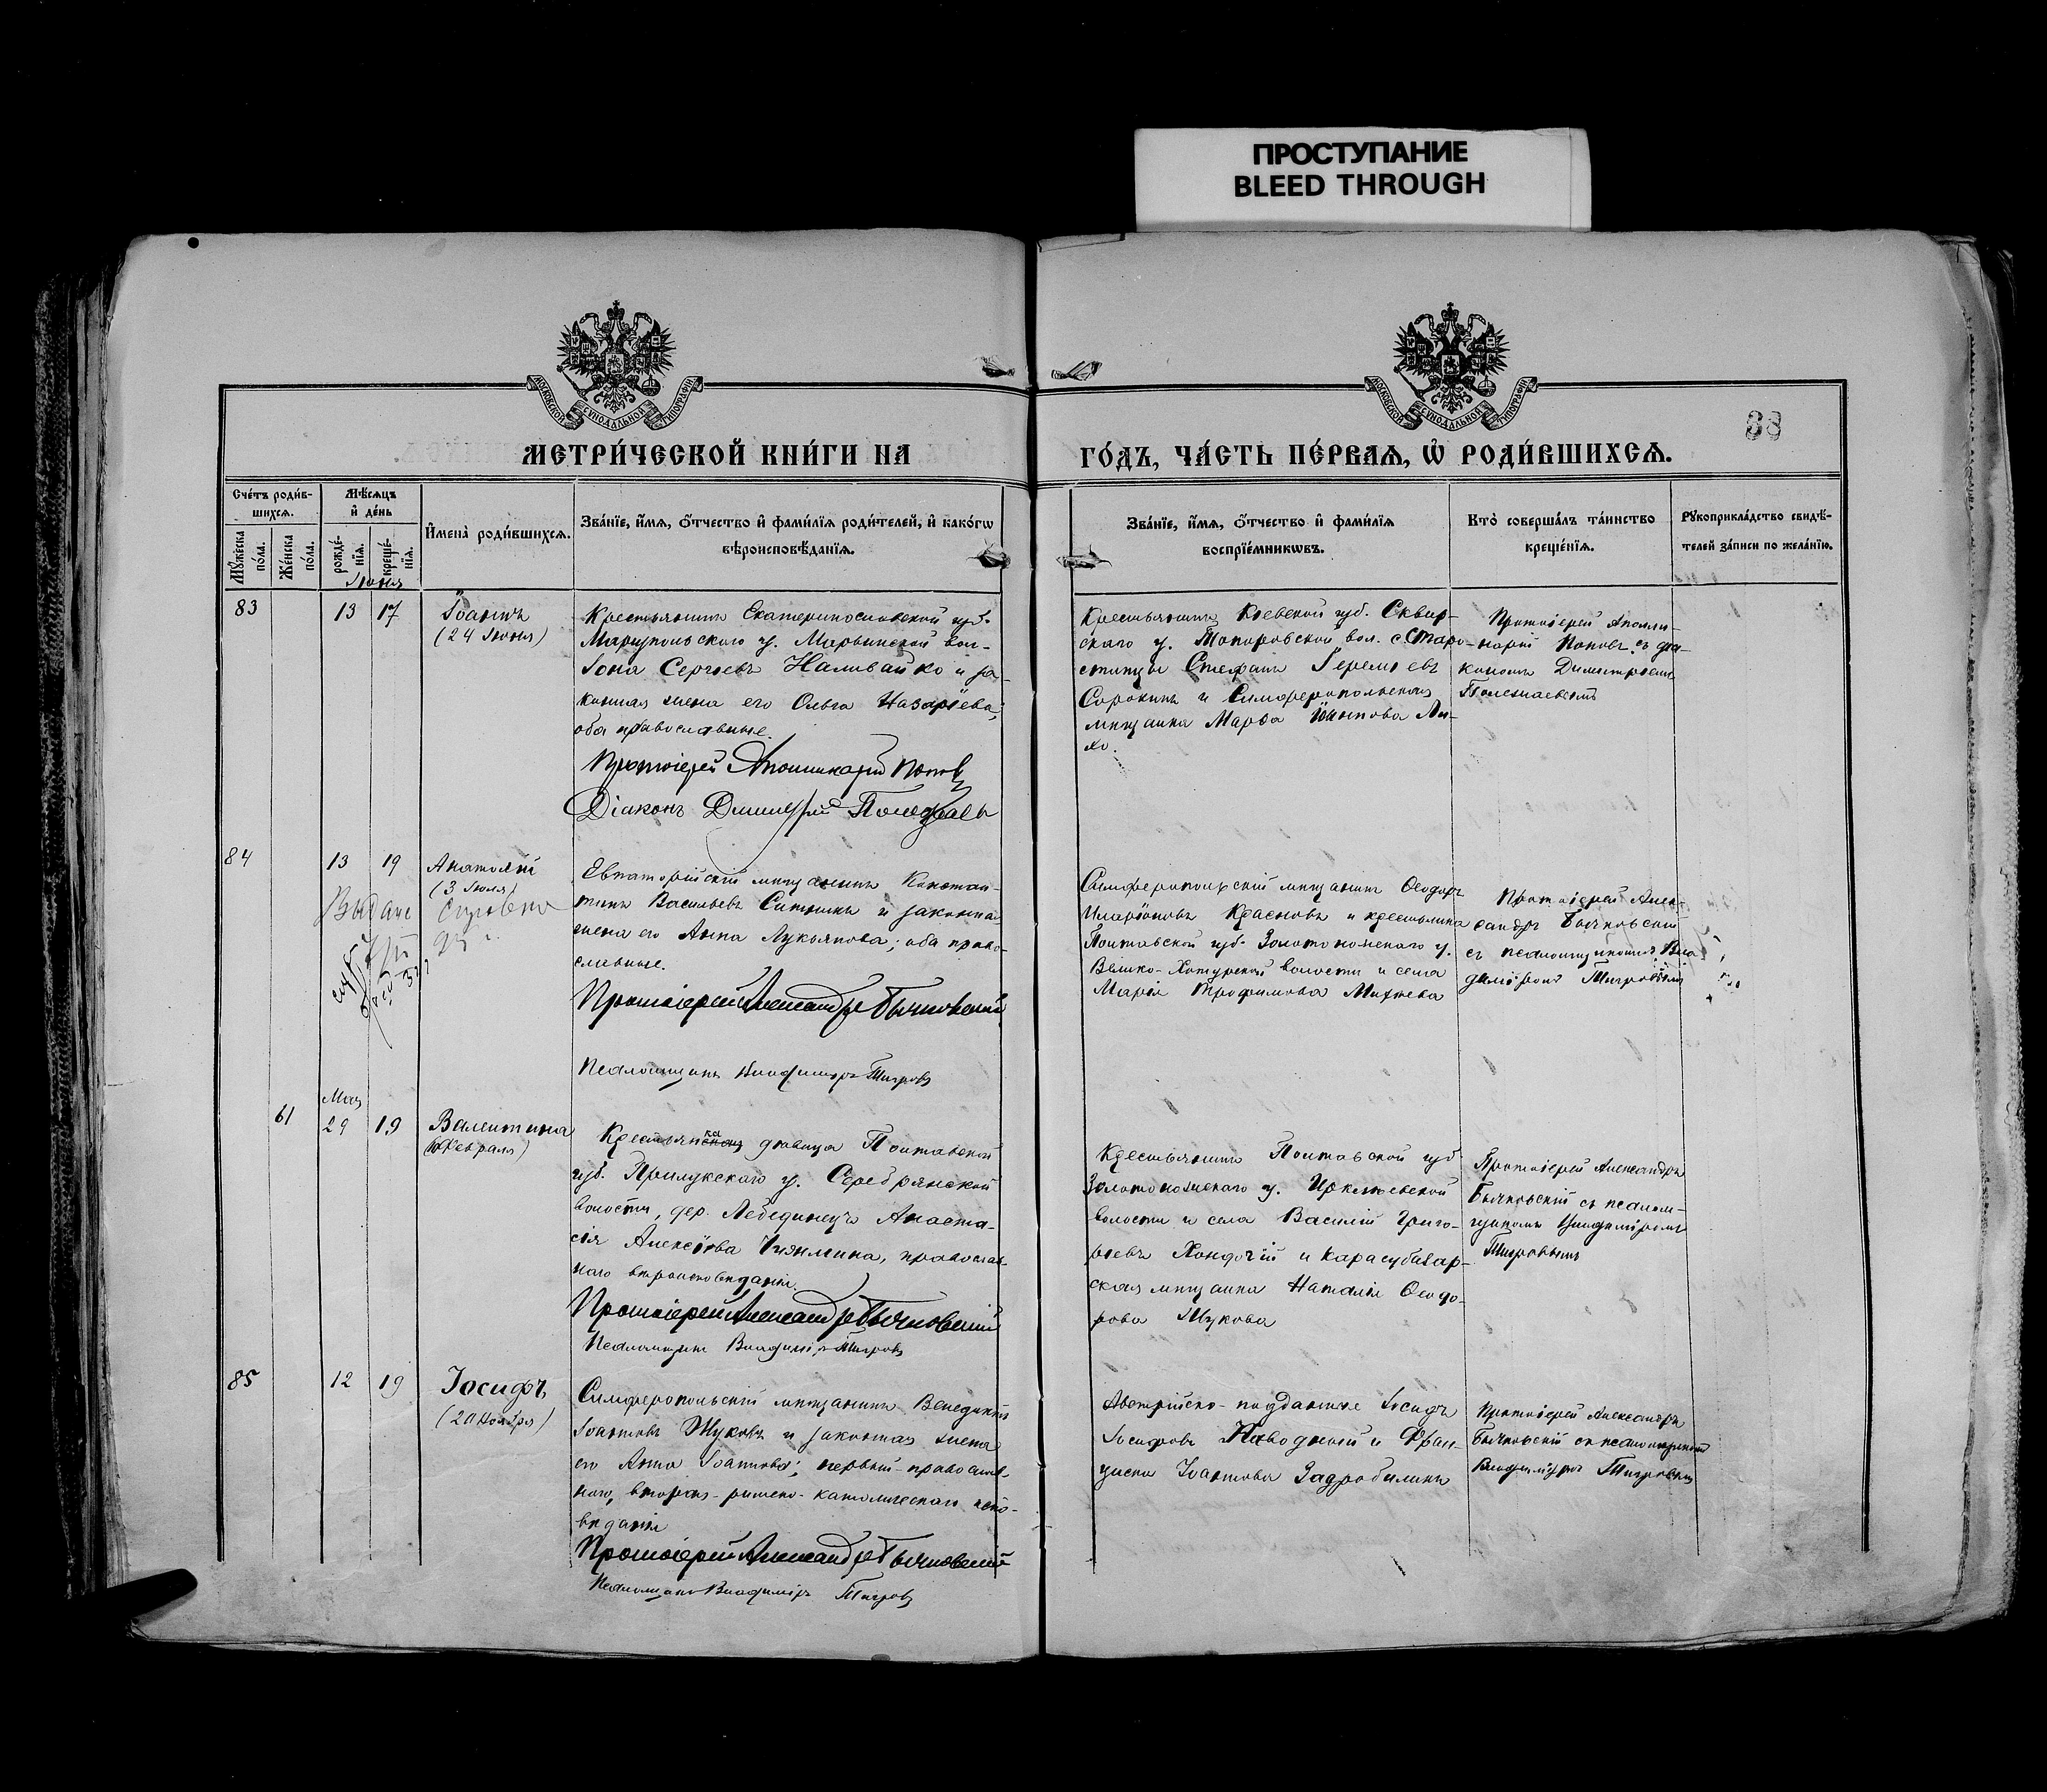 ПРОСТУПАНИЕ
BLEED THROUGH
МОСКОВСКОЙ СУНОДАЛЬНОЙ ТИПОГРАФІИ
МОСКОВСКОЙ СУНОДАЛЬНОЙ ТИПОГРАФІИ
38
МЕТРИ́ЧЕСКОЙ КНИ́ГИ НА
ГО́ДЪ, ЧА́СТЬ ПЕ́РВАѦ, Ѡ҆ РОДИ́ВШИХСѦ.
Сче́тъ роди́в-
шихсѧ.
Мꙋ́жеска
по́ла.
Же́нска
по́ла.
Мѣ́сѧцъ
и҆ де́нь
рожде́-
нїѧ.
креще́-
нїѧ.
И҆мена̀ роди́вшихсѧ.
Зва́нїе, и҆́мѧ, ѻ҆́тчество и҆ фами́лїѧ роди́телей, и҆ како́гѡ
вѣроисповѣ́данїѧ.
Зва́нїе, и҆́мѧ, ѻ҆́тчество и҆ фами́лїѧ
воспрїе́мникѡвъ.
Кто̀ соверша́лъ та́инство
креще́нїѧ.
Рꙋкоприкла́дство свидѣ́-
телей за́писи по жела́нїю.
Іюня
83
13
17
Іоаннъ
(24 Іюня)
Крестьянинъ Екатеринославской губ.
Маріупольскаго у. Марьинской вол.
Іона Сергѣевъ Наливайко и за-
конная жена его Ольга Назарѣева;
оба православные.
Протоіерей Аполлинарій Поповъ
Діаконъ Димитрій
Крестьянинъ Кіевской губ. Сквир-
скаго у. Топоровской вол. с. Старо-
Стефанъ Іереміевъ
Сорокинъ и Симферопольская
мѣщанка Марѳа Ли-
хо.
Протоіерей Аполли-
нарій Поповъ съ діа-
кономъ Димитріемъ
84
13
19
Анатолій
(3 Іюля)
Выдана
Евпаторійскій мѣщанинъ Констан-
тинъ Васильевъ Ситникъ и законная
жена его Анна Лукьянова; оба право-
славные.
Протоіерей Александръ Бычковскій
Псаломщикъ Владиміръ Тигровъ
Симферопольскій мѣщанинъ Ѳеодоръ
Иларіоновъ Красновъ и крестьянка
Полтавской губ. Золотоношскаго у.
Велико-Хуторской волости и села
Марія Трофимова Михнева
Протоіерей Алек-
сандръ Бычковскій
съ псаломщикомъ Вла-
диміромъ Тигровымъ
61
Мая
29
19
Валентина
Февраля)
Крестьянка дѣвица Полтавской
губ. Прилукскаго у. Серебрянской
волости, дер. Лебединецъ Анаста-
сія Алексѣева, православ-
наго вѣроисповѣданія.
Протоіерей Александръ Бычковскій
Псаломщикъ Владиміръ Тигровъ
Крестьянинъ Полтавской губ
Золотоношскаго у. Ирклѣевской
волости и села Василій Григо-
рьевъ и Карасубазар-
ская мѣщанка Наталія Ѳеодо-
рова Жукова
Протоіерей Александръ
Бычковскій съ псалом-
щикомъ Владиміромъ
Тигровымъ
85
12
19
Іосифъ
(20 Ноября)
Симферопольскій мѣщанинъ Венедиктъ
Іоанновъ Жуковъ и законная жена
его Анна Іоаннова; первый православ-
наго, вторая-римско-католическаго испо-
вѣданія
Протоіерей Александръ Бычковскій
Псаломщикъ Владиміръ Тигровъ
Австрійско-подданные Іосифъ
Іосифовъ и Фран-
циска Іоаннова
Протоіерей Александръ
Бычковскій съ псаломщикомъ
Владиміромъ Тигровымъ